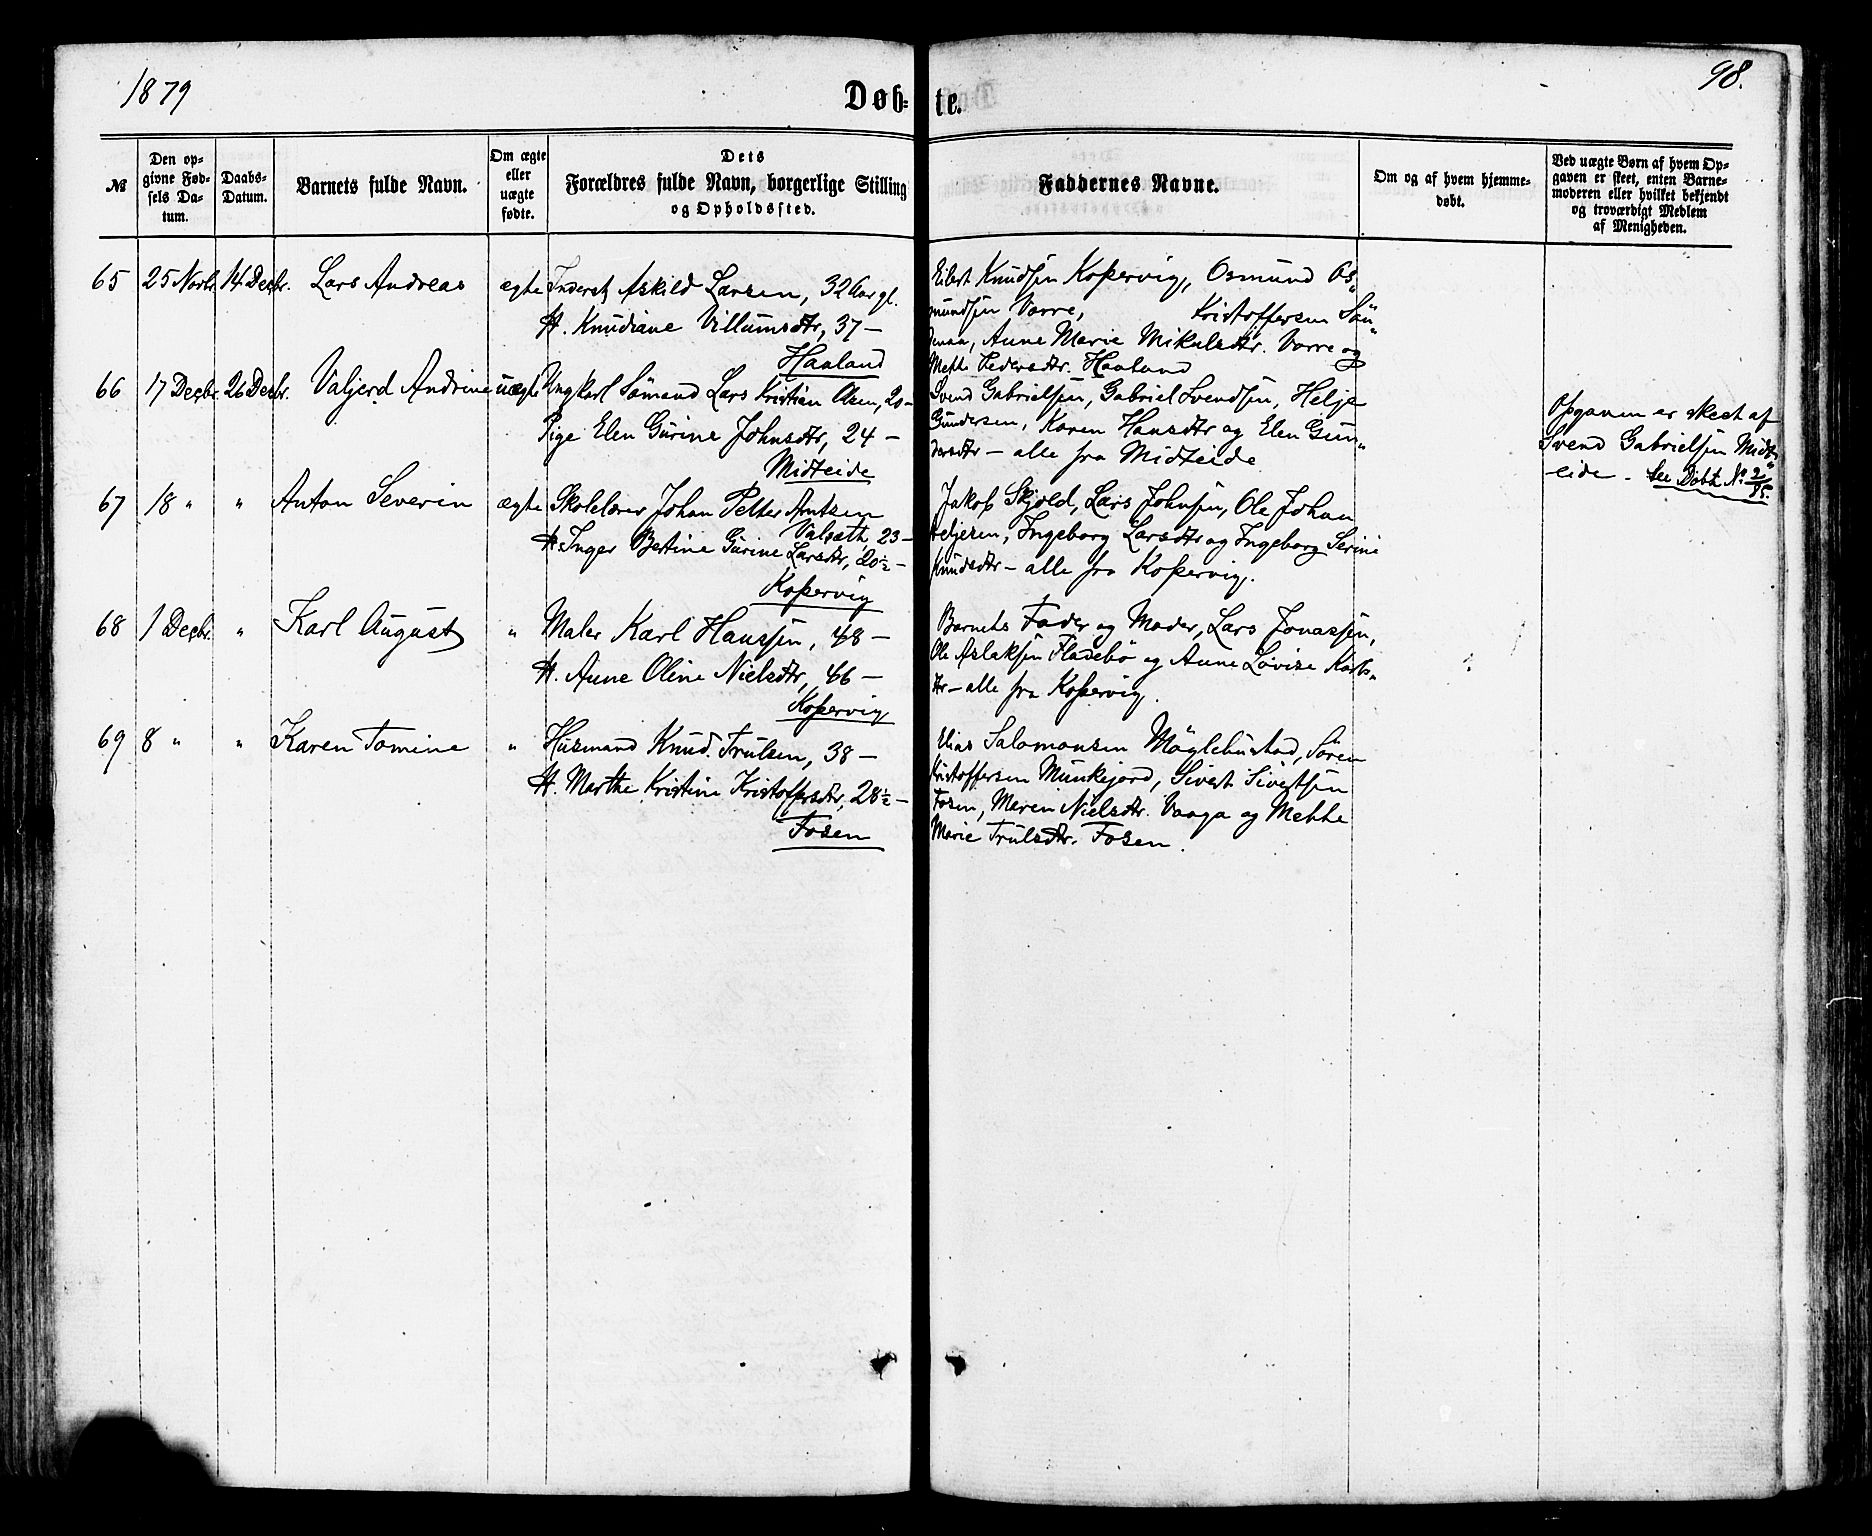 1879
98.
Døb-
te.
№
Den op-
givne Fød-
sels Da-
tum.
Daabs-
Datum.
Barnets fulde Navn.
Om ægte
eller
uægte
fødte.
Dets
Forældres fulde Navn, borgerlige Stilling
og Opholdssted.
Faddernes Navne.
Om og af hvem hjemme-
døbt.
Ved uægte Børn af hvem Op-
gaven er skeet, enten Barne-
moderen eller hvilket bekjendt
og troværdigt Medlem
af Menigheden.
65 25 Novbr. 14 Decbr. Lars Andreas ægte Inderst Askild Larsen, 32 Aar gl.
H. Knudiane Villumsdtr, 37 —
Haaland
Eilert Knudsen Kopervig, Osmund Os„
mundsen Vorre, Kristoffersen Sön„
denaa, Anne Marie Mikalsdtr. Vorre og
Mette Pedersdtr. Haaland
66 17 Decbr. 26 Decbr. Valjerd Andrine uægte Ungkarl Sömand Lars Kristian Olsen, 20 —
Pige Elen Gurine Johnsdtr, 24 —
Midteide
Svend Gabrielsen, Gabriel Svendsen, Helje
Gundersen, Karen Hansdtr og Elen Gun„
dersdtr — alle fra Midteide
Opgaven er skeet af
Svend Gabrielsen Midt„
eide. See Döbt. No 2/85.
67 18 " " Anton Severin ægte Skolelærer Johan Petter Arntzen
Valseth 23 —
H. Inger Bertine Gurine Larsdtr, 20½ —
Kopervig
Jakob Skjold, Lars Johnsen, Ole Johan
Heljesen, Ingeborg Larsdtr og Ingeborg Serine
Knudsdtr — alle fra Kopervig.
68 1 Decbr. " Karl August " Maler Karl Hanssen, 48 —
H. Anne Oline Nielsdtr, 46 —
Kopervig
Barnets Fader og Moder, Lars Jonassen,
Ole Aslaksen Fladebö og Anne Lovise Karls„
dtr — alle fra Kopervig.
69 8 " " Karen Tomine " Husmand Knud Trulsen, 38 —
H. Marthe Kristine Kristoffersdtr, 28½ —
Fosen
Elias Salomonsen Möglebustad, Sören
Kristoffersen Munkejord, Sivert Sivertsen
Fosen, Maren Nielsdtr. Vaaga og Mette
Marie Trulsdtr. Fosen.